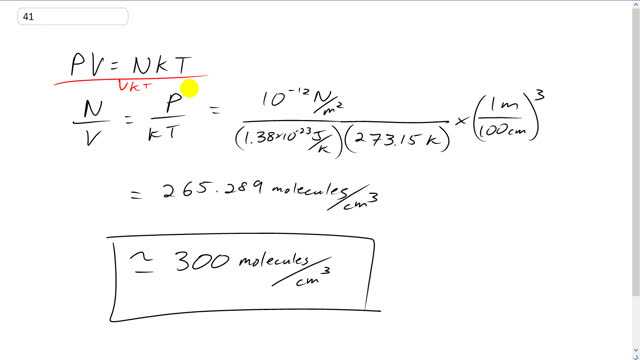 41
PV = NkT
VKT
N/V = P/kT = 10^-12 N/m^2 / (1.38×10^-23 J/K)(273.15 K) × (1m/100cm)^3
= 265.289 molecules/cm^3
≃ 300 molecules/cm^3